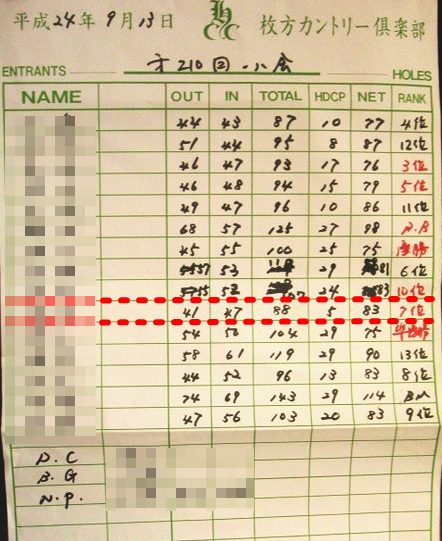 平成24年9月13日
HCC
枚方カントリー倶楽部
ENTRANTS 才210回 小会 HOLES
NAME OUT IN TOTAL HDCP NET RANK
44 43 87 10 77 4位
51 44 95 8 87 12位
46 47 93 17 76 3位
46 48 94 15 79 5位
49 47 96 10 86 11位
68 57 125 27 98 B.B
45 55 100 25 75 優勝
57 53 29 81 6位
55 52 107 24 83 10位
41 47 88 5 83 7位
54 50 104 29 75 準優勝
58 61 119 29 90 13位
44 52 96 13 83 8位
74 69 143 29 114 BM
47 56 103 20 83 9位
D.C
B.G
N.P.